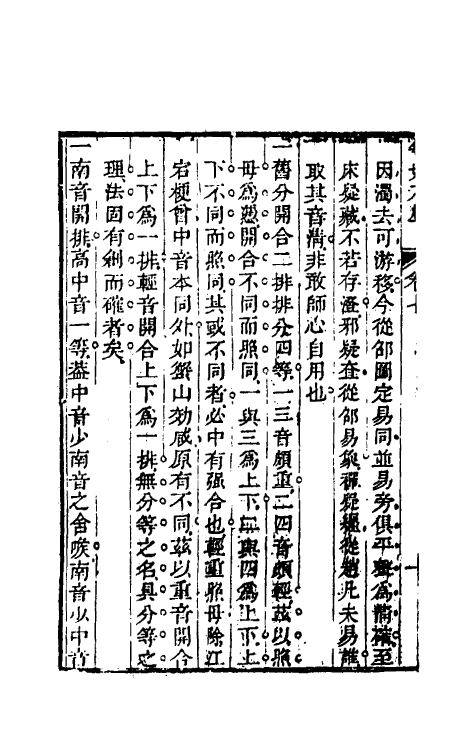 因濁去可游移今從邵圖定易同並易旁俱平聲爲清確至
牀疑藏不若存澄邪疑從邵易象禪疑從趙凡未易誰
取其音清非敢師心自用也
一舊分開合二排排分四等一三音頗重二四音頗輕茲以照
母爲慈開合不同而照同一與三爲上下二與四爲上下上
下不同而照同其或不同者必中有强合也輕重照母除江
宕梗曾中音本同外如蟹山効咸原有不同茲以重音開合
上下爲一排輕音開合上下爲一排無分等之名具分等之
理法固有剏而確者矣
一南音開排高中音一等葢中音少南音之舍喉南音少中音